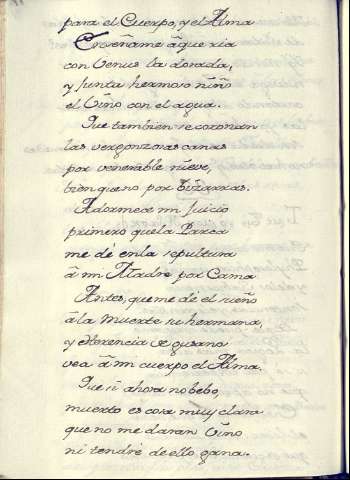 para el Cuerpo, y el Alma
Enseñame à que ria
con Venus la dorada,
y junta hermoso niño
el Vino con el agua.
Que tambien se coronan
las vergonzosas canas
por venerable nieve,
bien que no por bizarras.
Adormece mi juicio
primero que la Parca
me dé en la sepultura
à mi Madre por Cama
Antes, que me dé el sueño
à la muerte su hermana,
y Herencia de gusano
vea à mi cuerpo el Alma.
Que si ahora no bebo,
muerto es cosa muy clara
que no me daran Vino
ni tendrè de ello gana.